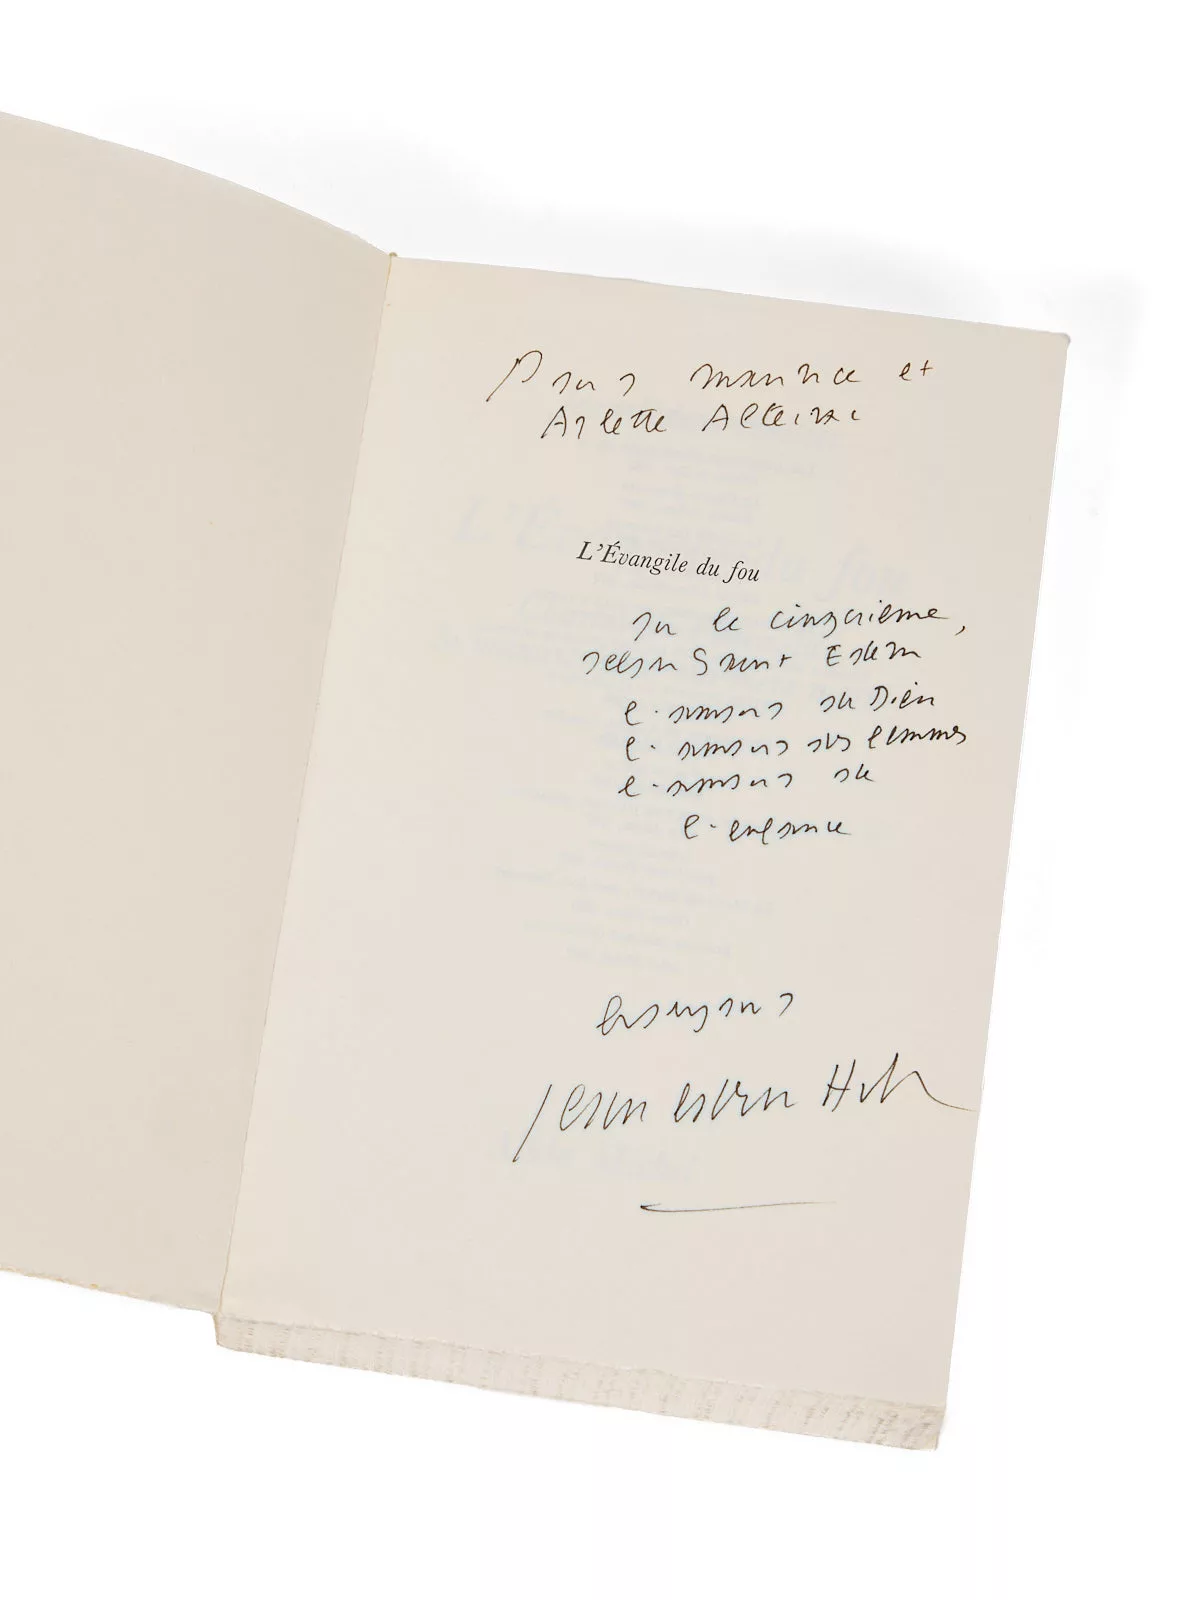 Pour Maurice et
Arlette
L'Évangile du fou
ou le cinquième,
selon Saint Edern
l'amour de Dieu
l'amour des femmes
l'amour de
l'enfance
Jean Edern Hallier